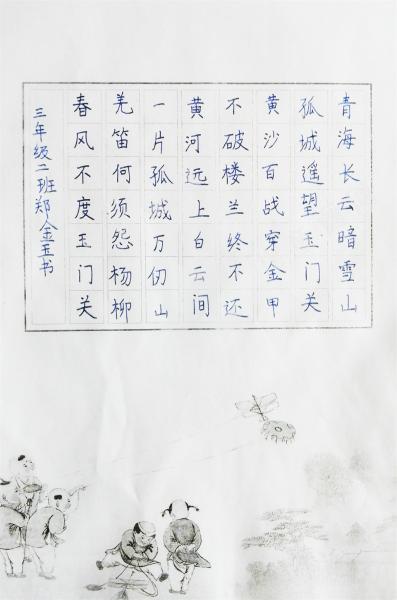 青海长云暗雪山
孤城遥望玉门关
黄沙百战穿金甲
不破楼兰终不还
黄河远上白云间
一片孤城万仞山
羌笛何须怨杨柳
春风不度玉门关
三年级二班郑金玉书